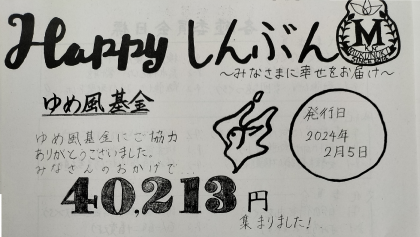 Happy しんぶん
M
～みなさまに幸せをお届け～
ゆめ風基金
発行日
2024年
2月5日
ゆめ風基金にご協力
ありがとうございました。
みなさんのおかげで...
40,213円
集まりました!